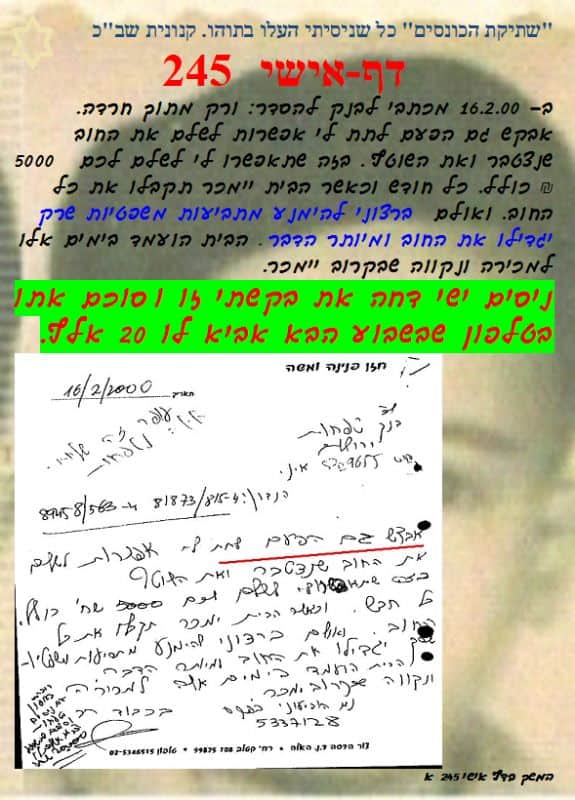 "שתיקת הכונסים" כל שניסיתי העלו בתוהו. קנונית שב"כ
דף-אישי 245
ב- 16.2.00 מכתבי לבנק להסדר: ורק מתוך חרדה.
אבקש גם הפעם לתת לי אפשרות לשלם את החוב
שנצטבר ואת השוטף. בזה שתאפשרו לי לשלם לכם 5000
₪ כולל. כל חודש וכאשר הבית יימכר תקבלו את כל
החוב. ואולם ברצוני להימנע מתביעות משפטיות שרק
יגדילו את החוב ומיותר הדבר. הבית הועמד בימים אלו
למכירה ונקווה שבקרוב יימכר.
ניסים ישי דחה את בקשתי זו וסוכם אתו
בטלפון שבשבוע הבא אביא לו 20 אלף.
חזן פנינה ומשה
תאריך 16/2/2000
בנק טפחות
ירושלים
הנדון: 81873/815-4
אבקש גם הפעם לתת לי אפשרות לשלם
את החוב שנצטבר ואת השוטף
בזה שתאפשרו לי לשלם לכם 5000 שח' כולל.
כל חודש. וכאשר הבית ימכר תקבלו את כל
החוב. ואולם ברצוני להימנע מתביעות משפטיו-
שרק יגדילו את החוב ומיותר הדבר.
הבית הועמד בימים אלו למכירה
ונקווה שבקרוב ימכר
בכבוד רב
5337128
טלפון 02-5346515 • רח' קטלב 108 99875 •
המשך בדף אישי 245 א